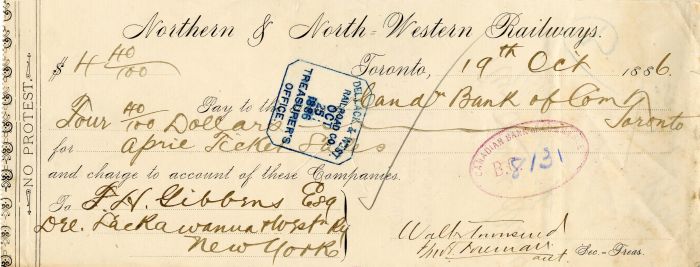 Northern & North-Western Railways.
NO PROTEST.
$ 4 40/100 Toronto, 19th Oct 1886.
Pay to the Candn Bank of Com
Four 40/100 Dollars Toronto
for April Ticket Sales
and charge to account of these Companies.
To F. H. Gibbens Esq
Del. Lackawanna & Westn Ry
New York
DEL. LACK. & WEST.
RAILROAD CO.
OCT
25
1886
TREASURER'S
OFFICE.
CANADIAN BANK
8131
Walter Townsend
Sec.-Treas.